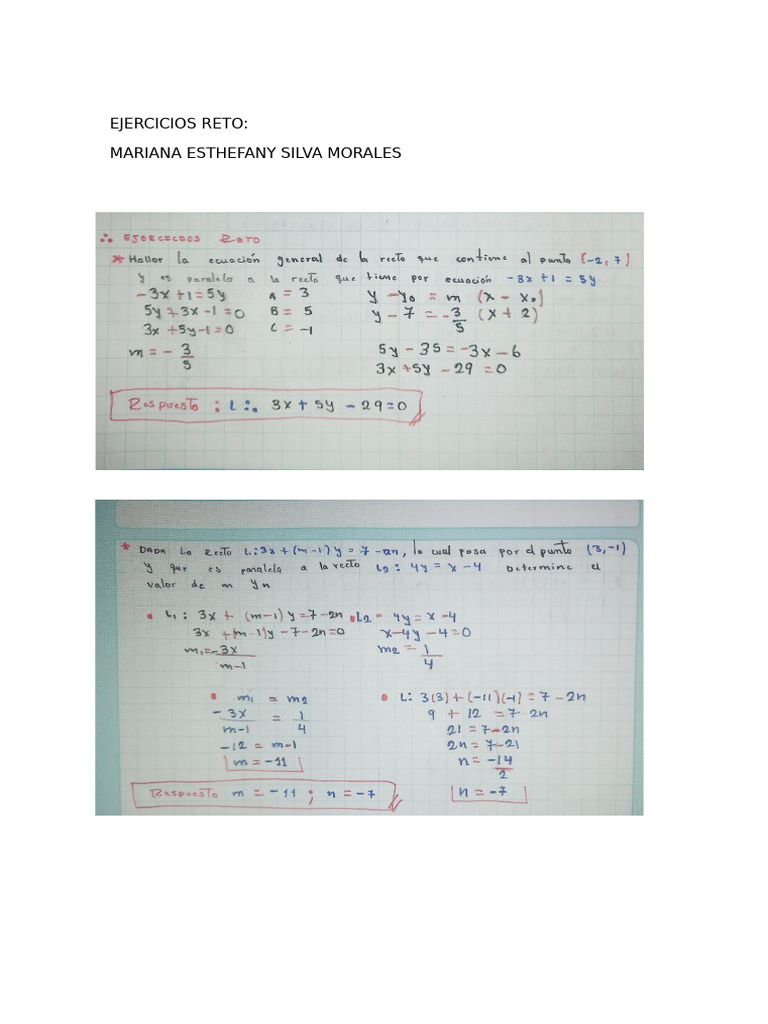 EJERCICIOS RETO:
MARIANA ESTHEFANY SILVA MORALES
∴ EJERCECEOS RETO
* Hallar la ecuación general de la recta que contiene al punto [-2, 7]
y es paralela a la recta que tiene por ecuación -3x + 1 = 5y
-3x + 1 = 5y
5y + 3x - 1 = 0
3x + 5y - 1 = 0
m = - 3/5
A = 3
B = 5
C = -1
y - y₀ = m (x - x₀]
y - 7 = -3/5 (x + 2)
5y - 35 = -3x - 6
3x + 5y - 29 = 0
Respuesta : L ∴ 3x + 5y - 29 = 0
* DADA La Recta L₁: 3x + (m - 1) y = 7 - 2n, la cual pasa por el punto (3, -1)
y que es paralela a la recta L₂ : 4y = x - 4 Determine el
valor de m y n
• L₁ : 3x + (m-1) y = 7 - 2n
3x + (m-1)y - 7 - 2n = 0
m₁ = -3x/m-1
• L2 = 4y = x - 4
x - 4y - 4 = 0
m2 = 1/4
• m₁ = m2
-3x/m-1 = 1/4
-12 = m-1
m = -11
• L: 3(3) + (-11)(-1) = 7 - 2n
9 + 12 = 7 2n
21 = 7 - 2n
2n = 7 - 21
n = -14/2
n = -7
Respuesto m = -11 ; n = -7